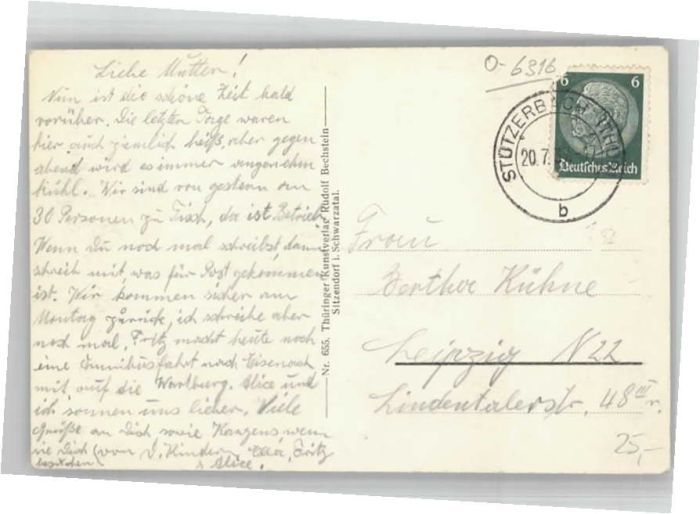 Liebe Mutter!
Nun ist die schöne Zeit bald
vorüber. Die letzten Tage waren
hier auch ziemlich heiß, aber gegen
abend wird es immer angenehm
kühl. Wir sind von gestern an
30 Personen zu Tisch, da ist Betrieb
Wenn Du noch mal schreibst, dann
schreib mit, was für Post gekommen
ist. Wir kommen sicher am
Montag zurück, ich schreibe aber
noch mal. Fritz macht heute noch
eine Omnibusfahrt nach Eisenach
mit, auf die Wartburg. Alice und
ich sonnen uns lieber. Viele
Grüße an Dich sowie wenn
sie Dich (von d. Kindern Ella, Fritz
besuchen) & Alice.
Nr. 655. Thüringer Kunstverlag Rudolf Bechstein
Sitzendorf i. Schwarzatal.
O-6316
6 6
Deutsches Reich
STÜTZERBACH (THÜR
20.7.
b
Frau
Bertha Kühne
Leipzig N 22
Lindentalerstr. 48 III r.
25,-